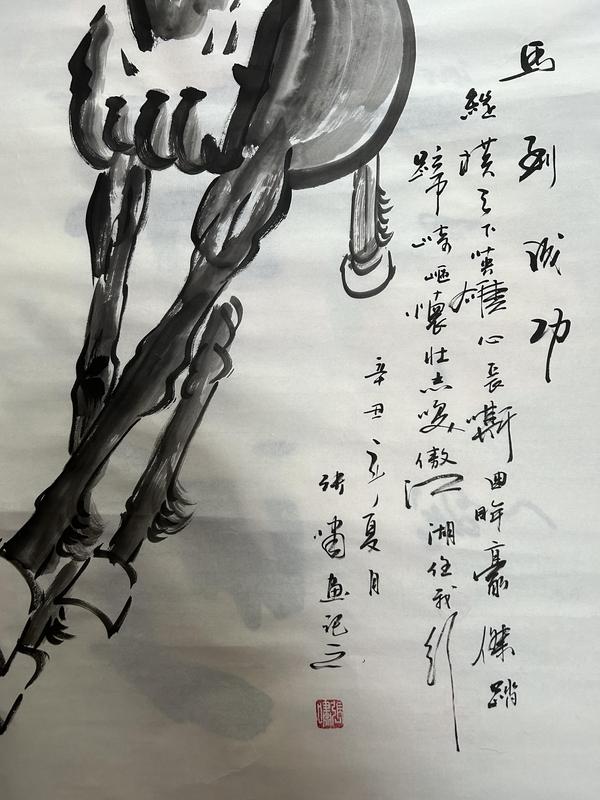 馬到成功
縱横天下英雄心長嘶回眸豪傑踏
蹄崎嶇懷壯志笑傲江湖任我行
辛丑之夏月
张嘯画记之
張嘯